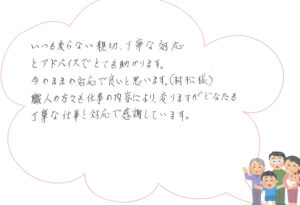 いつも変らない親切、丁寧な対応
とアドバイスでとても助かります。
今のままの対応で良いと思います。(村松様)
職人の方々も仕事の内容により、変りますがどなたも
丁寧な仕事と対応で感謝しています。